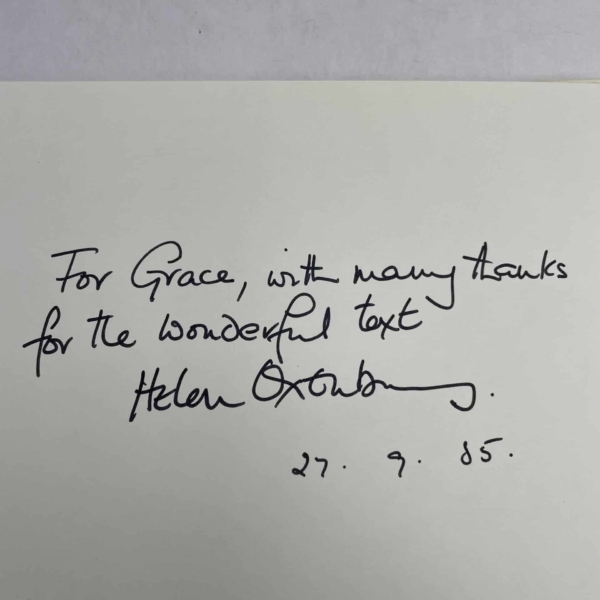 For Grace, with many thanks
for the wonderful text
Helen Oxenbury.
27. 9. 85.